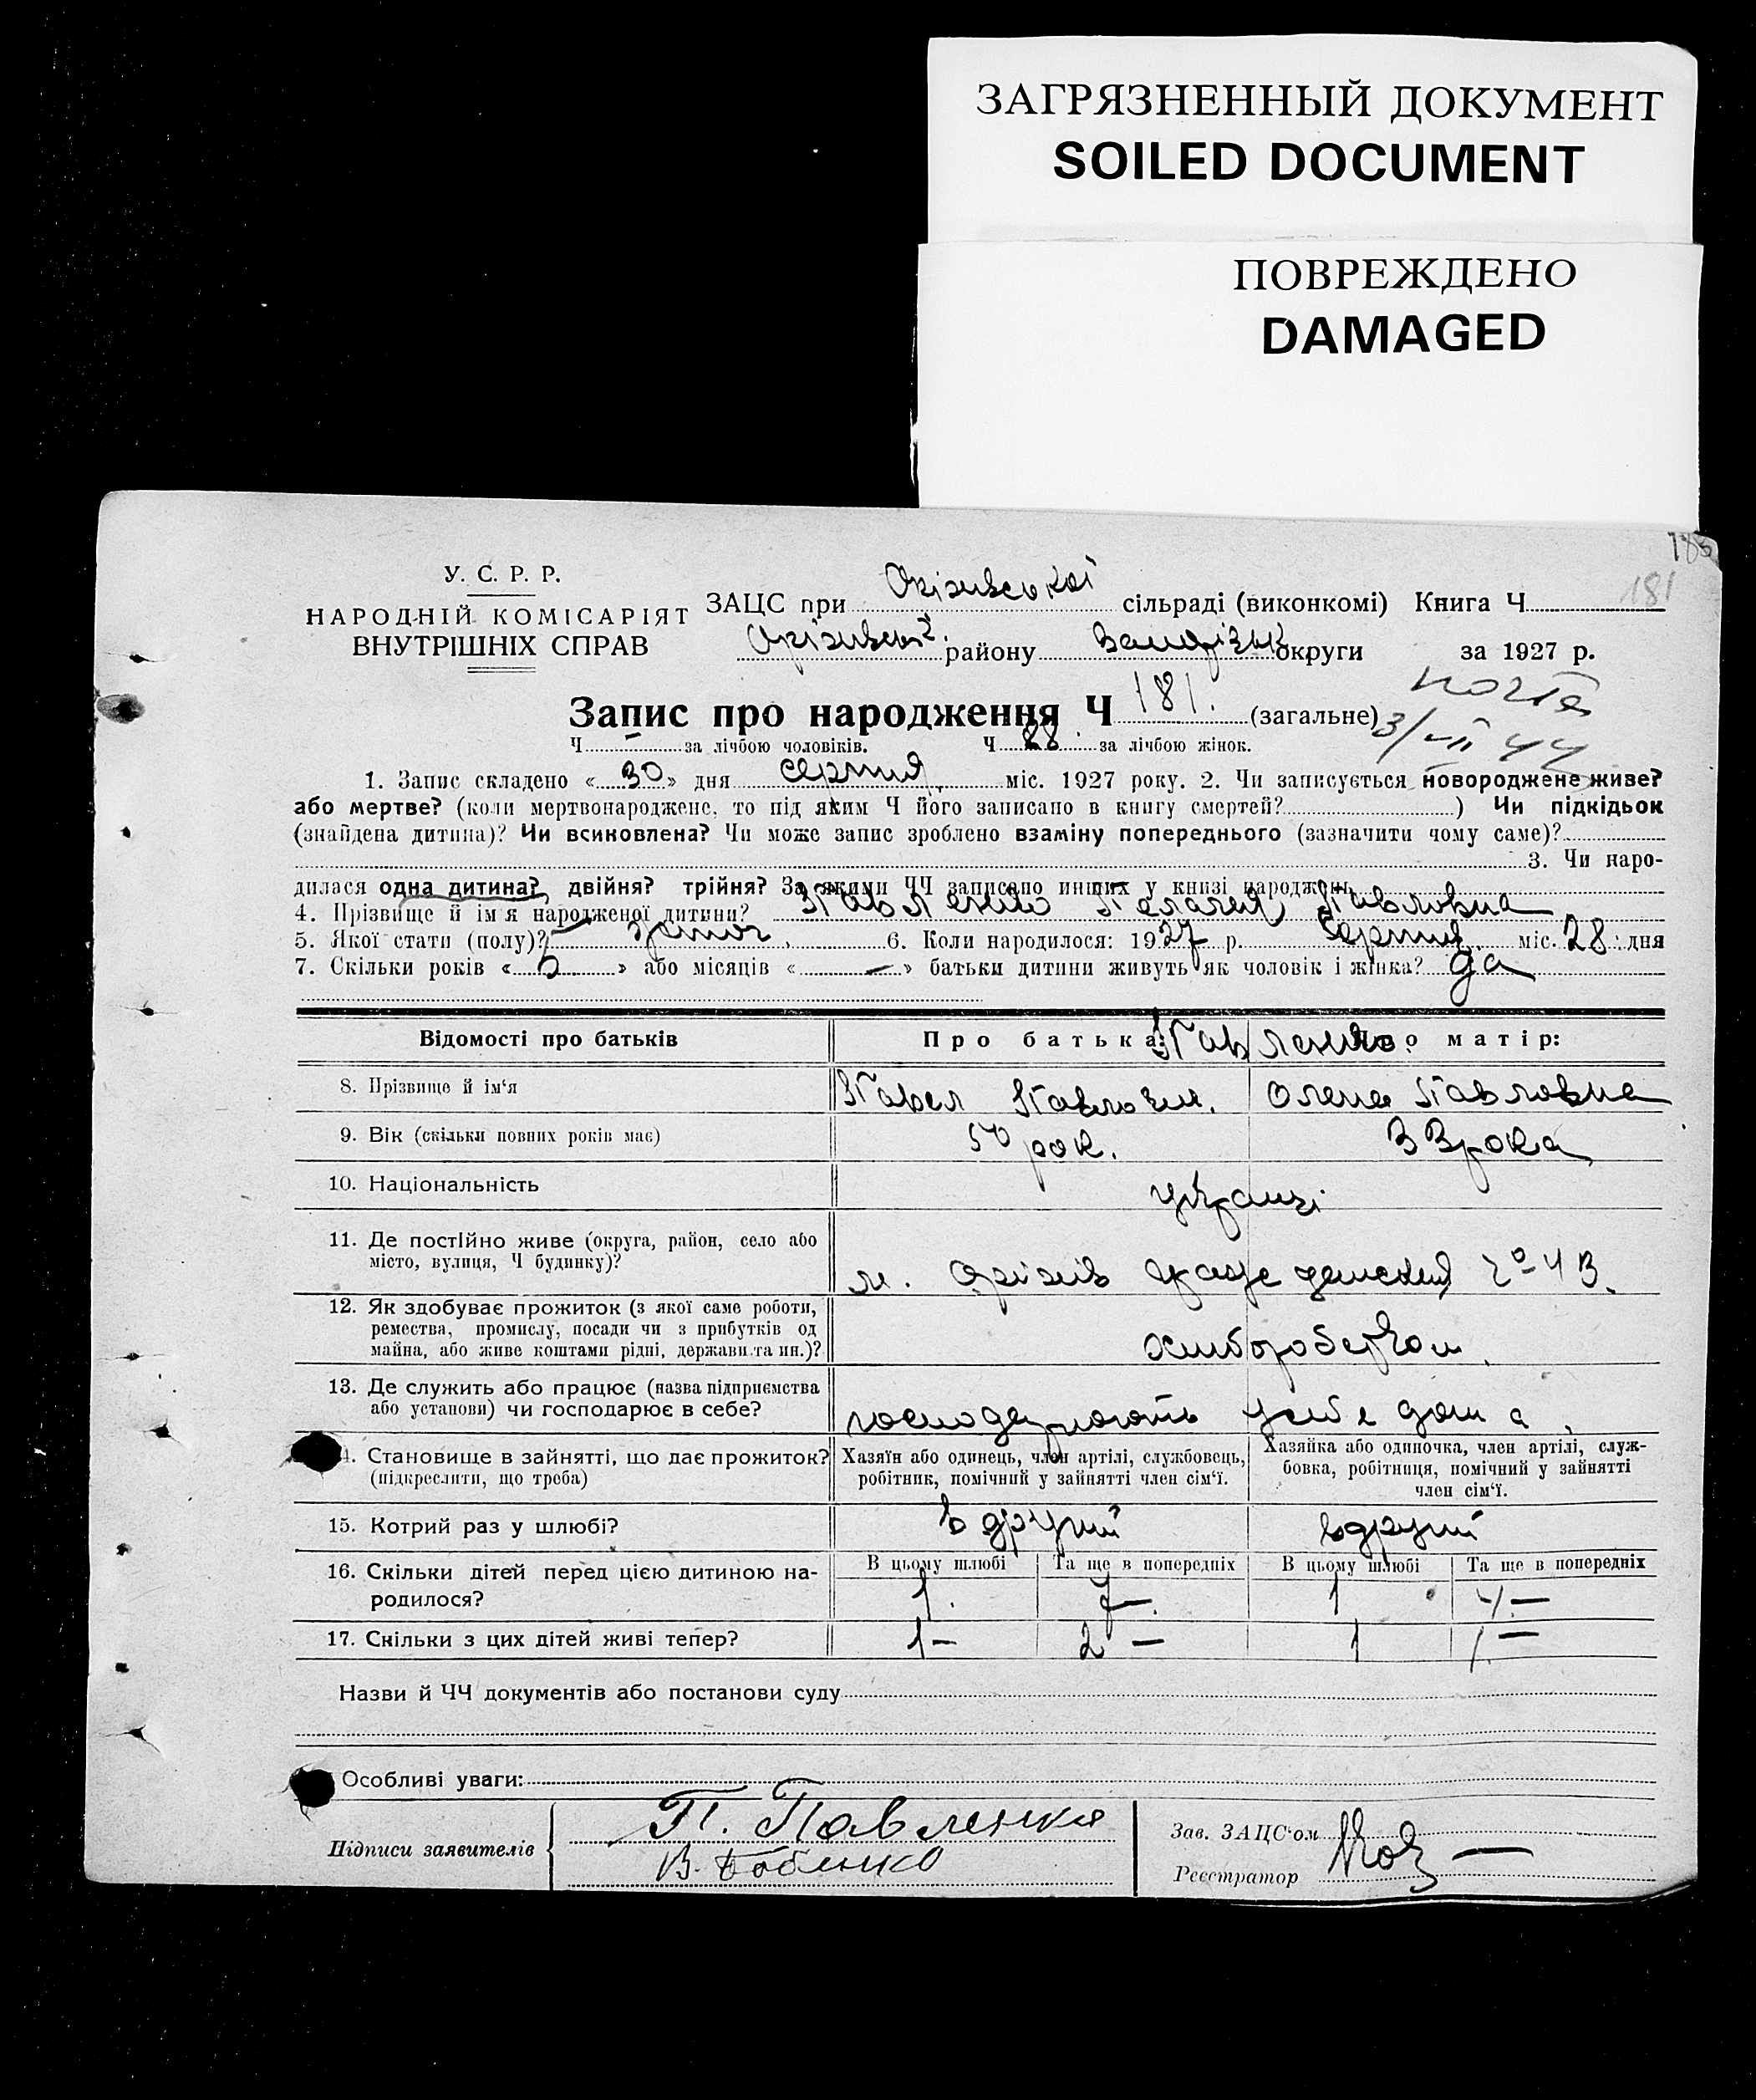 ЗАГРЯЗНЕННЫЙ ДОКУМЕНТ
SOILED DOCUMENT
ПОВРЕЖДЕНО
DAMAGED
181
У. С. Р. Р.
НАРОДНІЙ КОМІСАРІЯТ
ВНУТРІШНІХ СПРАВ
ЗАЦС при Оріхівської сільраді (виконкомі) Книга Ч
району Запоріз округи за 1927 р.
Запис про народження Ч 181. (загальне)
3/VII 44
Ч – за лічбою чоловіків. Ч 88 за лічбою жінок.
1. Запис складено «30» дня серпня міс. 1927 року. 2. Чи записується новороджене живе?
або мертве? (коли мертвонароджене, то під яким Ч його записано в книгу смертей?) Чи підкідьок
(знайдена дитина)? Чи всиновлена? Чи може запис зроблено взаміну попереднього (зазначити чому саме)?
3. Чи наро-
дилася одна дитина? двійня? трійня? За якими ЧЧ записано инших у книзі народжень
4. Прізвище й ім'я народженої дитини? Павленко Пелагея Павловна
5. Якої стати (полу)? жіноч. 6. Коли народилося: 1927 р. серпня міс. 28 дня
7. Скільки років «5» або місяців «–» батьки дитини живуть як чоловік і жінка? да
Відомості про батьків Про батька: Павленко. Про матір:
8. Прізвище й ім'я Павел Павлович. Олена Павловна
9. Вік (скільки повних років має) 50 рок. 33 рока
10. Національність українці
11. Де постійно живе (округа, район, село або
місто, вулиця, Ч будинку)? м. Оріхів Гражданская № 43.
12. Як здобуває прожиток (з якої саме роботи,
ремества, промислу, посади чи з прибутків од
майна, або живе коштами рідні, держави та ин.)? хліборобством.
13. Де служить або працює (назва підприємства
або установи) чи господарює в себе? господарюють у себе дома.
14. Становище в зайнятті, що дає прожиток?
(підкреслити, що треба)
Хазяїн або одинець, член артілі, службовець,
робітник, помічний у зайнятті член сім'ї.
Хазяйка або одиночка, член артілі, служ-
бовка, робітниця, помічний у зайнятті
член сім'ї.
15. Котрий раз у шлюбі? в другий вдругий
16. Скільки дітей перед цією дитиною на-
родилося?
В цьому шлюбі Та ще в попередніх В цьому шлюбі Та ще в попередніх
1. 7–. 1 4–
17. Скільки з цих дітей живі тепер? 1– 2 – 1 1–
Назви й ЧЧ документів або постанови суду
Особливі уваги:
Підписи заявителів
П. Павленко
Зав. ЗАЦС'ом
Реєстратор